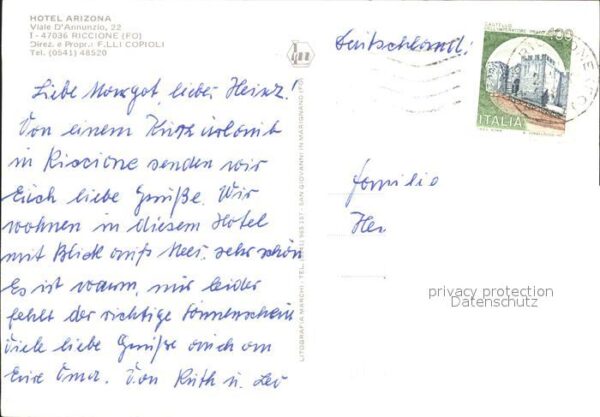 HOTEL ARIZONA
Viale D'Annunzio, 22
I - 47036 RICCIONE (FO)
Direz. e Propr.: F.LLI COPIOLI
Tel. (0541) 48520
Deutschland!
CASTELLO
400
ITALIA
Liebe Margot, lieber Heinz!
Von einem Kurzurlaub
in Riccione senden wir
Euch liebe Grüße. Wir
wohnen in diesem Hotel
mit Blick aufs Meer, sehr schön
Es ist warm, nur leider
fehlt der richtige Sonnenschein
Viele liebe Grüße auch an
Eure Oma. Von Ruth u. Leo
LITOGRAFIA MARCHI - TEL. (0541) 963 157 - SAN GIOVANNI IN MARIGNANO (FO)
Familie
privacy protection
Datenschutz